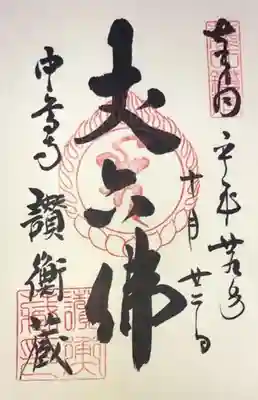 奉拝
平成廿九年
十月廿二日
丈六佛
中尊寺
讚衡蔵